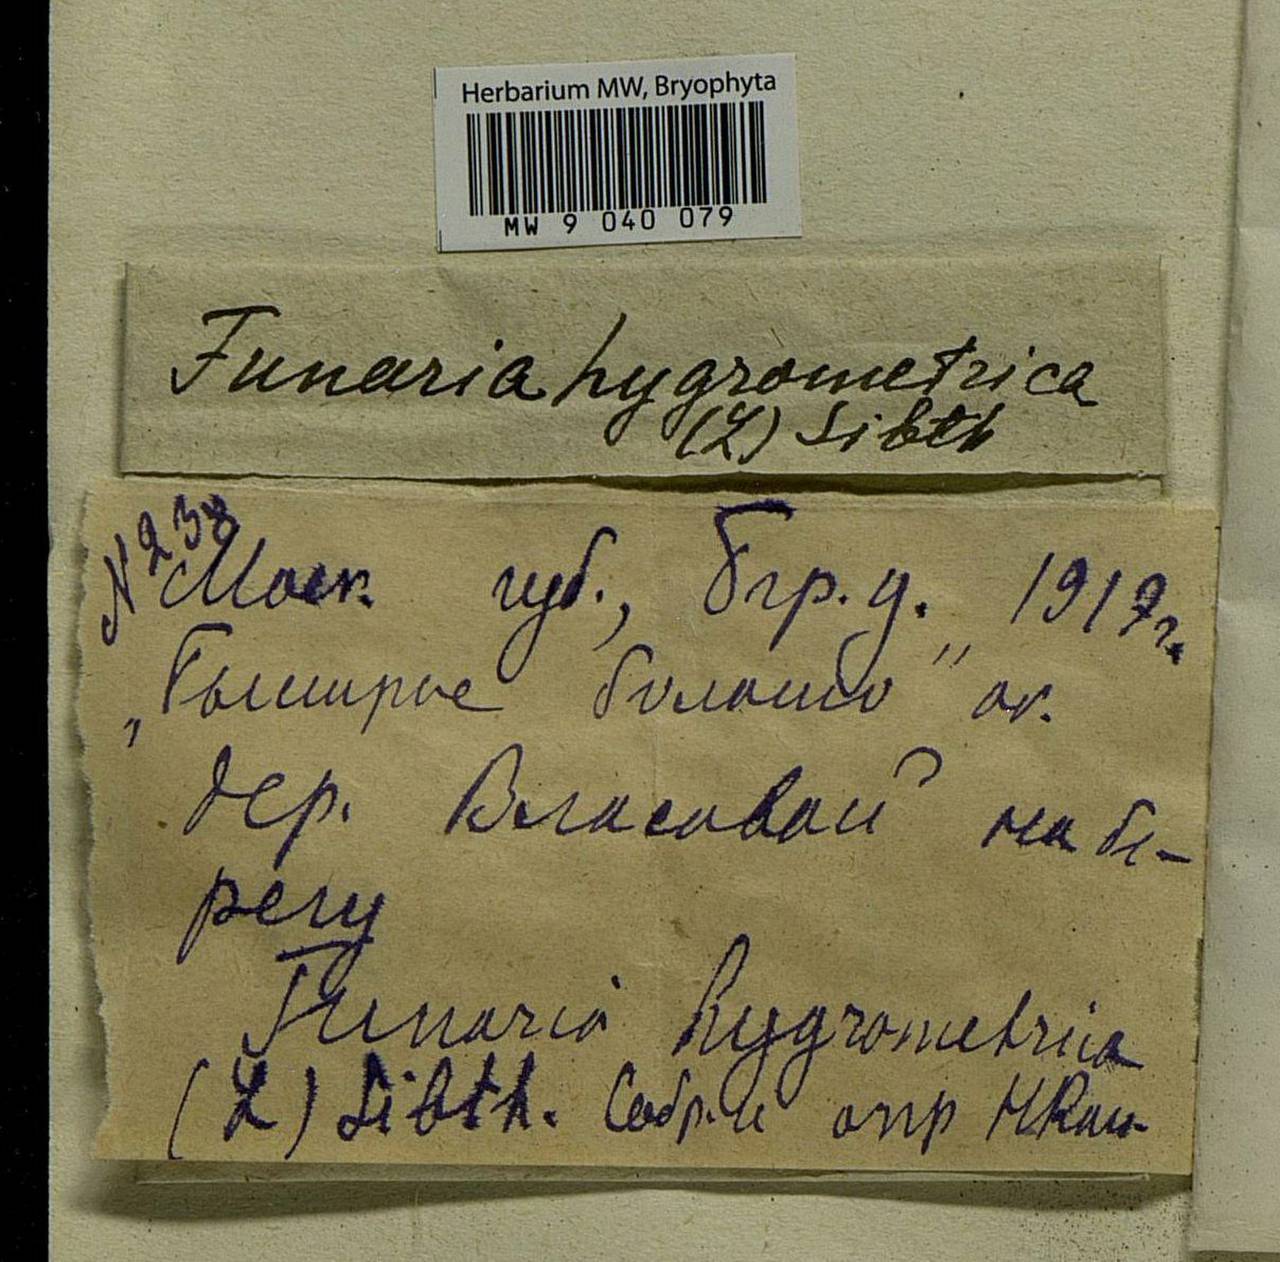 Herbarium MW, Bryophyta
MW 9 040 079
Funaria hygrometrica
(L) Sibth
Моск. губ., Бгр. у. 1917г.
болото" ок.
дер. Власовой на бе-
регу
Funaria hygrometrica
(L) Sibth. Собр. и опр